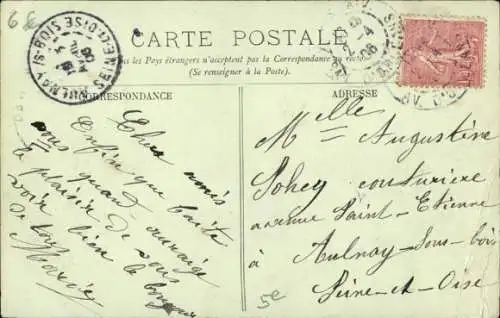 6€
AULNAY-S-BOIS
SEINE-ET-OISE
CARTE POSTALE
les Pays étrangers n'acceptent pas la Correspondance au recto
(Se renseigner à la Poste).
CORRESPONDANCE
ADRESSE
Chers amis
Enfin que
vous quand
le plaisir de vous
voir bien le bonjour
de
Marie
Melle Augustine
Sohey couturière
avenue Saint-Etienne
à Aulnay-Sous-bois
Seine-et-Oise
5€